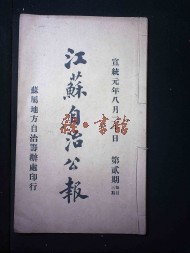 宣統元年八月　日　第貳期
江蘇自治公報
蘇屬地方自治籌辦處印行